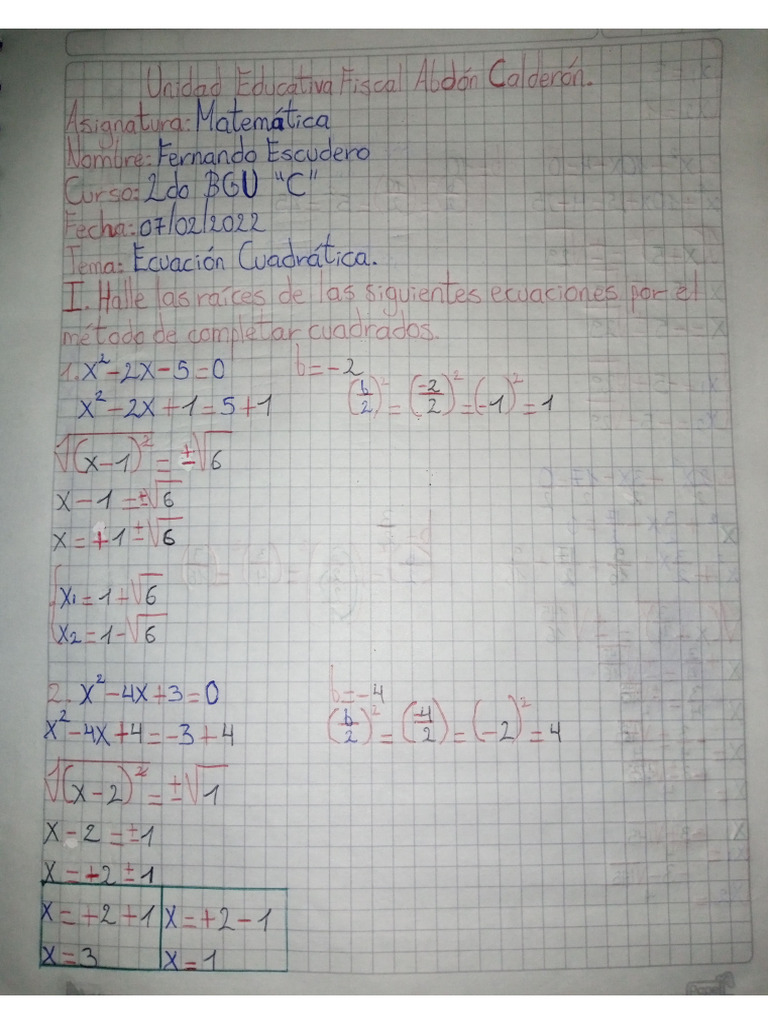 Unidad Educativa Fiscal Abdón Calderón.
Asignatura: Matemática
Nombre: Fernando Escudero
Curso: 2do BGU "C"
Fecha: 07/02/2022
Tema: Ecuación Cuadrática.
I. Halle las raíces de las siguientes ecuaciones por el
método de completar cuadrados.
1. x² - 2x - 5 = 0 b = -2
x² - 2x + 1 = 5 + 1 (b/2)² = (-2/2)² = (-1)² = 1
√(x - 1)² = ±√6
x - 1 = ±√6
x = +1 ± √6
x₁ = 1 + √6
x₂ = 1 - √6
2. x² - 4x + 3 = 0 b = -4
x² - 4x + 4 = -3 + 4 (b/2)² = (-4/2) = (-2)² = 4
√(x - 2)² = ±√1
x - 2 = ±1
x = +2 ± 1
x = +2 + 1 x = +2 - 1
x = 3 x = 1